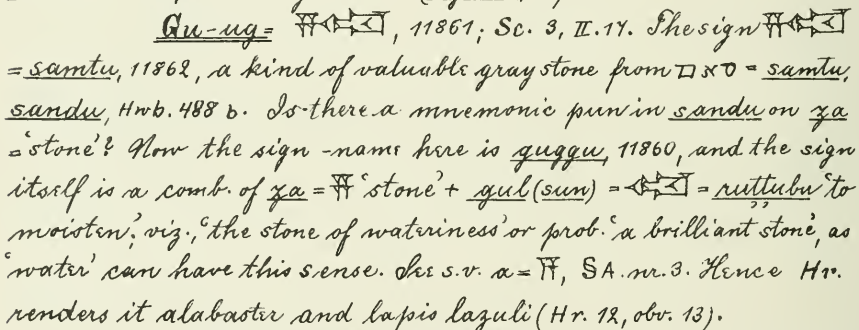 Gu-ug = 𒍝𒄢, 11861; Sc. 3, II.17. The sign 𒍝𒄢
= samtu, 11862, a kind of valuable gray stone from סאם = samtu,
sandu, Hwb. 488 b. Is there a mnemonic pun in sandu on za
= 'stone'? Now the sign-name here is guggu, 11860, and the sign
itself is a comb. of za = 𒍝 'stone' + gul (sun) = 𒄢 = ruttubu 'to
moisten;' viz., 'the stone of wateriness' or prob. 'a brilliant stone', as
'water' can have this sense. See s.v. a = 𒀀, §A. nr. 3. Hence Hr.
renders it alabaster and lapis lazuli (Hr. 12, obv. 13).